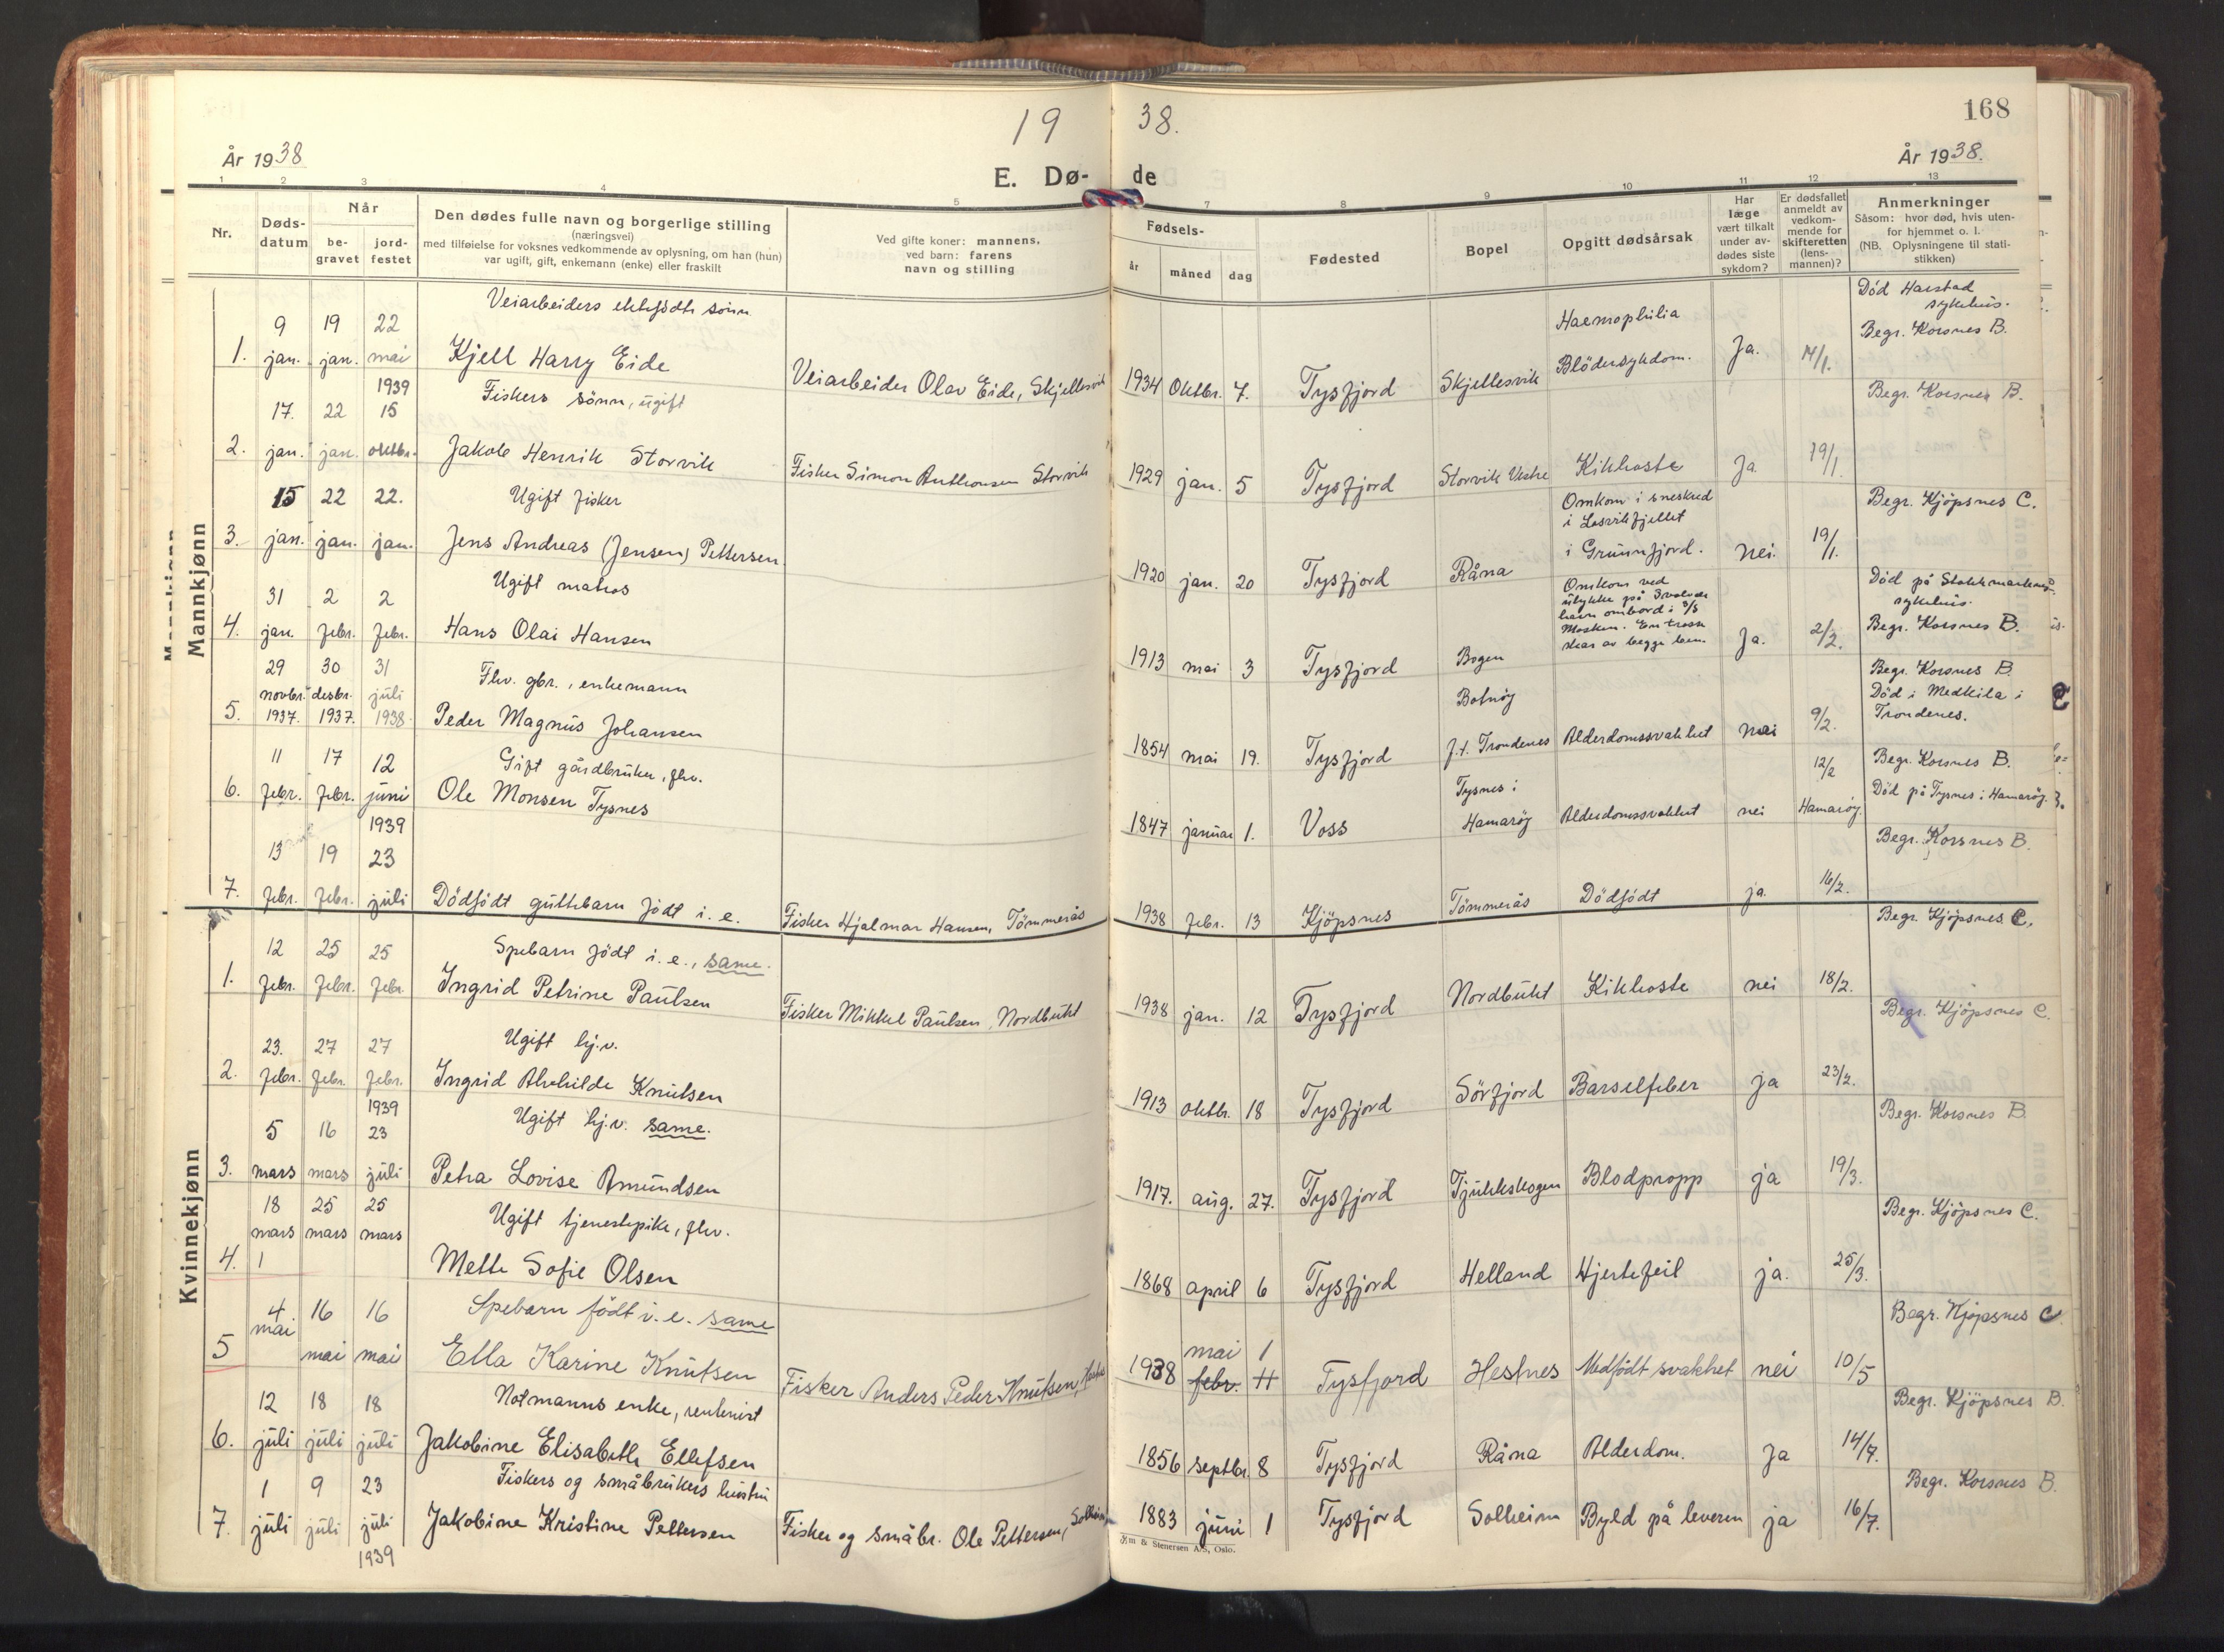 19 38.
168
År 1938
År 1938.
E. Dø- de
1 2 3 4 5 7 8 9 10 11 12 13
Nr.
Døds-
datum
Når
be-
gravet
jord-
festet
Den dødes fulle navn og borgerlige stilling
(næringsvei)
med tilføielse for voksnes vedkommende av oplysning, om han (hun)
var ugift, gift, enkemann (enke) eller fraskilt
Ved gifte koner: mannens,
ved barn: farens
navn og stilling
Fødsels-
år
måned
dag
Fødested
Bopel
Opgitt dødsårsak
Har
læge
vært tilkalt
under av-
dødes siste
sykdom?
Er dødsfallet
anmeldt av
vedkom-
mende for
skifteretten
(lens-
mannen)?
Anmerkninger
Såsom: hvor død, hvis uten-
for hjemmet o. l.
(NB. Oplysningene til stati-
stikken)
Mannkjønn
Veiarbeiders ektefödte sönn
Död Harstad
sykehus.
9 19 22 Haemophilia Begr. Korsnes B.
1. jan. jan. mai Kjell Harry Eide Veiarbeider Olav Eide, Skjellesvik 1934 Oktbr. 7. Tysfjord Skjellesvik Blödersykdom. Ja. 14/1.
1939
Fiskers sönn, ugift Begr. Korsnes B.
17. 22 15
2. jan. jan. oktbr. Jakob Henrik Storvik Fisker Simon Anthonsen Storvik 1929 jan. 5 Tysfjord Storvik Vestre Kikhoste Ja 19/1.
15 22 22. Ugift fisker Omkom i sneskred Begr. Kjöpsnes C.
i Losvikfjellet
3. jan. jan. jan. Jens Andreas (Jensen) Pettersen. 1920 jan. 20 Tysfjord Råna i Grunnfjord. nei. 19/1.
Ugift matros Omkom ved Död på Stokmarknes
31 2 2 ulykke på Svolvær sykehus.
havn ombord i D/S
4. jan. febr. febr. Hans Olai Hansen 1913 mai 3 Tysfjord Bogen Mosken. En trosse Ja. 2/2. Begr. Korsnes B.
skar av begge ben.
29 30 31 Fhv. gbr., enkemann Botnög Begr. Korsnes B.
novbr. desbr. juli Död i Medkila i
5. 1937. 1937. 1938. Peder Magnus Johansen 1854 mai 19. Tysfjord f.t. Trondenes Alderdomssvakhet nei 9/2. Trondenes.
11 17 12 Gift gårdbruker, fhv. Tysnes i 12/2 Begr. Korsnes B.
6. febr. febr. juni Ole Monsen Tysnes 1847 januar 1. Voss Hamaröy Alderdomssvakhet nei Hamaröy. Död på Tysnes i Hamaröy.
1939
13 19 23 Begr. Korsnes B.
7. febr. febr. juli Dödfödt guttebarn födt i. e. Fisker Hjalmar Hansen, Tömmerås 1938 febr. 13 Kjöpsnes Tömmerås Dödfödt ja. 16/2.
Kvinnekjønn
12 25 25 Spebarn födt i. e., same. Begr. Kjöpsnes C.
1. febr. febr. febr. Ingrid Petrine Paulsen Fisker Mikkel Paulsen, Nordbukt 1938 jan. 12 Tysfjord Nordbukt Kikhoste nei 18/2.
23. 27 27 Ugift hj.v. Begr. Kjöpsnes C.
2. febr. febr. febr. Ingrid Alvhilde Knutsen 1913 oktbr. 18 Tysfjord Sörfjord Barselfeber ja 23/2.
1939
5 16 23 Ugift hj.v. same. Begr. Korsnes B.
3. mars mars juli Petra Lovise Amundsen 1917. aug. 27. Tysfjord Tjukkskogen Blodpropp ja 19/3.
18 25 25 Ugift tjenestepike, fhv. Begr. Kjöpsnes C.
mars mars mars
4. Mette Sofie Olsen 1868 april 6 Tysfjord Helland Hjertefeil ja. 25/3.
4 16 16 Spebarn födt i. e. same Begr. Kjöpsnes C.
mai mai 1
5 mai mai Ella Karine Knutsen Fisker Anders Peder Knutsen, 1938 febr. 11 Tysfjord Hestnes Medfödt svakhet nei 10/5
12 18 18 Notmanns enke, rentenist Begr. Kjöpsnes B.
6. juli juli juli Jakobine Elisabeth Ellefsen 1856 septbr. 8 Tysfjord Råna Alderdom. Ja 14/7.
1 9 23 Fiskers og småbrukers hustru Begr. Korsnes B.
7. juli juli juli Jakobine Kristine Pettersen Fisker og småbr. Ole Pettersen, Solheim 1883 juni 1 Tysfjord Solheim Byld på leveren ja 16/7.
1939
& Stenersen A/S, Oslo.